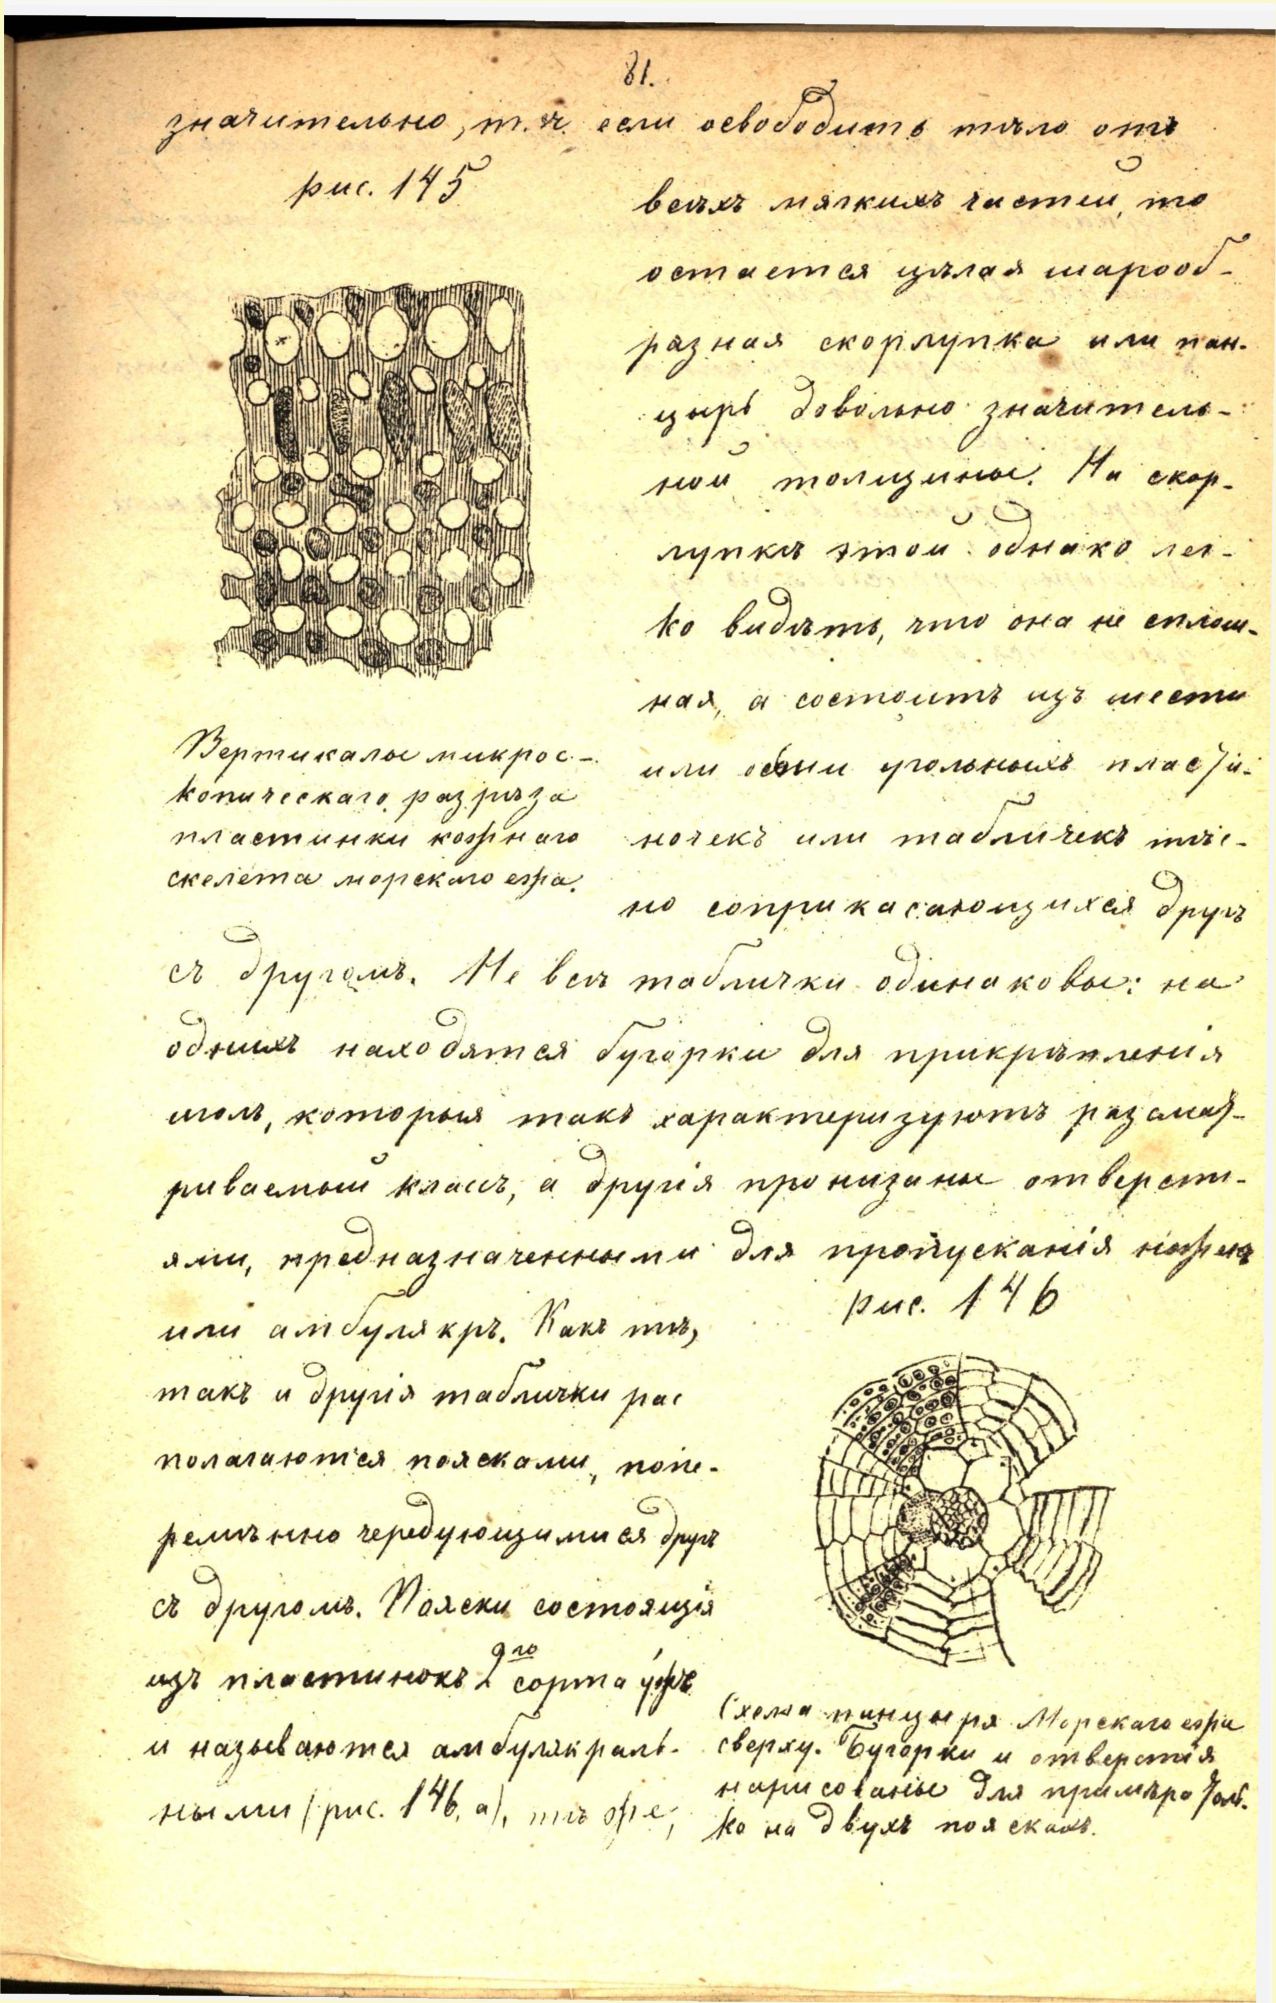 81.
значительно, т. ч. если освободить тѣло отъ
рис. 145
всѣхъ мягкихъ частей, то
остается цѣлая шарооб-
разная скорлупка или пан-
цырь довольно значитель-
ной толщины. На скор-
лупкѣ этой однако лег-
ко видѣть, что она не сплош-
ная, а состоитъ изъ шести
или осьми угольныхъ пласти-
ночекъ или табличекъ тѣс-
но соприкасающихся другъ
Вертикалы микрос-
копическаго разрѣза
пластинки кожнаго
скелета морского ежа.
съ другомъ. Не всѣ таблички одинаковы: на
однихъ находятся бугорки для прикрѣпленія
иголъ, которыя такъ характеризуютъ разсмат-
риваемый классъ, а другія пронизаны отверсті-
ями, предназначенными для пропусканія ножекъ
или амбулякръ. Какъ тѣ,
такъ и другія таблички рас
полагаются поясками, попе-
ремѣнно чередующимися другъ
съ другомъ. Пояски состоящія
изъ пластинокъ 2го сорта уже
и называются амбулякраль-
ными (рис. 146, а), тѣ же,
рис. 146
Схема панцыря Морскаго ежа
сверху. Бугорки и отверстія
нарисованы для примѣра толь-
ко на двухъ пояскахъ.